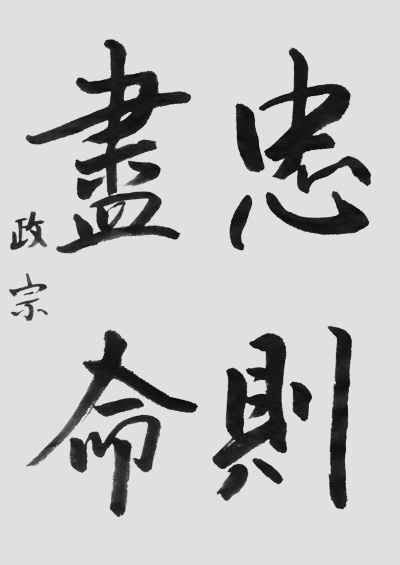 忠則
盡命
政宗